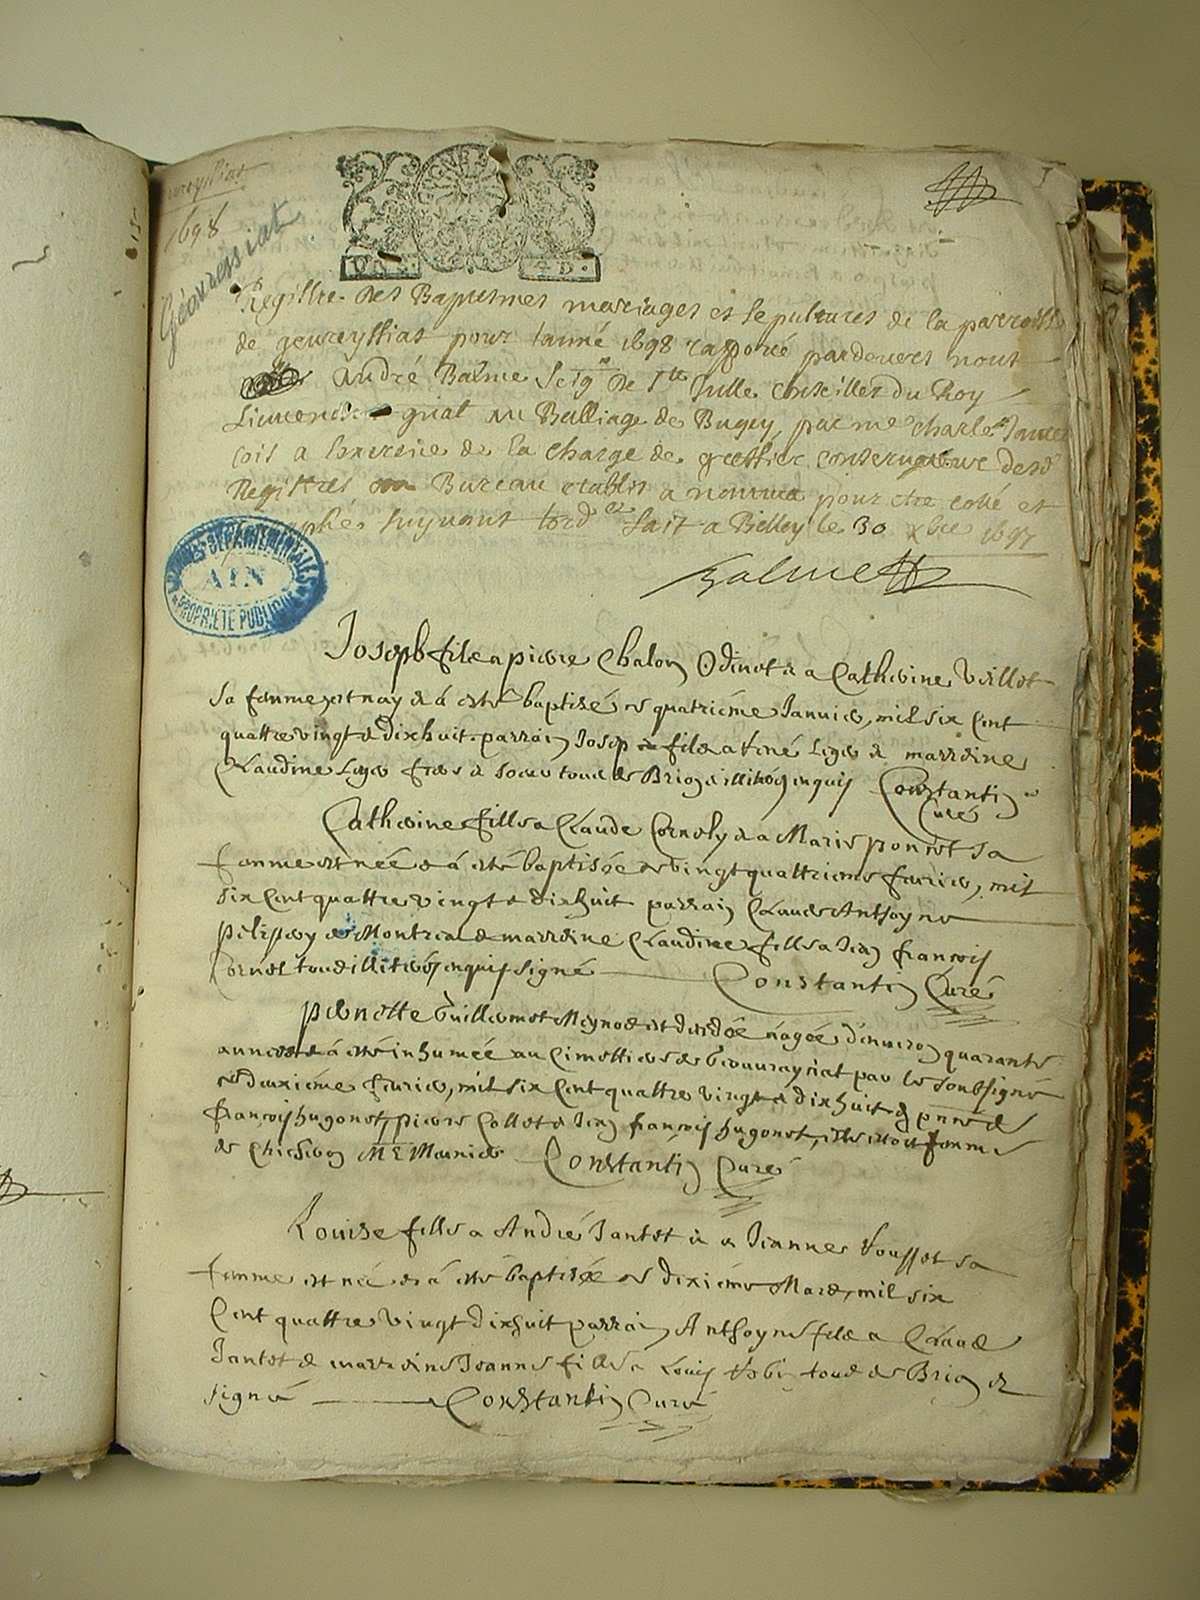 1698
Géovressiat
Registre des Baptesmes mariages et sepultures de la parroisse
de gevreyssiat pour lanné 1698 raporté pardevers nous
André Balme Seigr de Ste Julle conseiller du Roy
Lieutenant gnal au Balliage de Bugey, par me Charle
cois a lexercice de la charge de greffier conservateur desd
Registres Bureau etablis a nantua pour etre cotté et
suyvant lord fait a Belley le 30 xbre 1697
Balme
ARCHIVES DEPARTEMENTALES
AIN
PROPRIETE PUBLIQUE
Joseph fils a pierre Chalon Odinet & a Catherine
sa femme est nay & à esté baptisé ce quatrième Janvier, mil six Cent
quattre vingt & dixhuit. parrain Josep fils a & marreine
Claudine tous de Brion illiterés enquis Constantin
Curé
Catherine fille a Claude Cornely & a Marie poncet sa
femme est née & à esté baptisée ce vingt quattrieme fevrier, mil
six Cent quattre vingt & dixhuit parrain Claude Anthoyne
de Montreal & marreine Claudine fille a Jean françois
Cornet tous illiterés enquis signé Constantin Curé
pernette Guillermet Meynod est decedée âgée d'environ quarante
années & à esté inhumée au Cimettiere de Geouvreyciat par le soubsigné
ce deuxième fevrier, mil six Cent quattre vingt & dixhuit & pnce de
françois hugonet, pierre Collet & Jean françois hugonet, elle estoit femme
de Me Munier Constantin Curé
Louise fille a André Jantet & a Jeanne Pousset sa
femme est née & à esté baptisée ce dixiéme Mars, mil six
Cent quattre vingt dixhuit parrain Anthoyne fils a Claude
Jantet & marreine Jeanne fille a Louis tous de Brion &
signé Constantin Curé